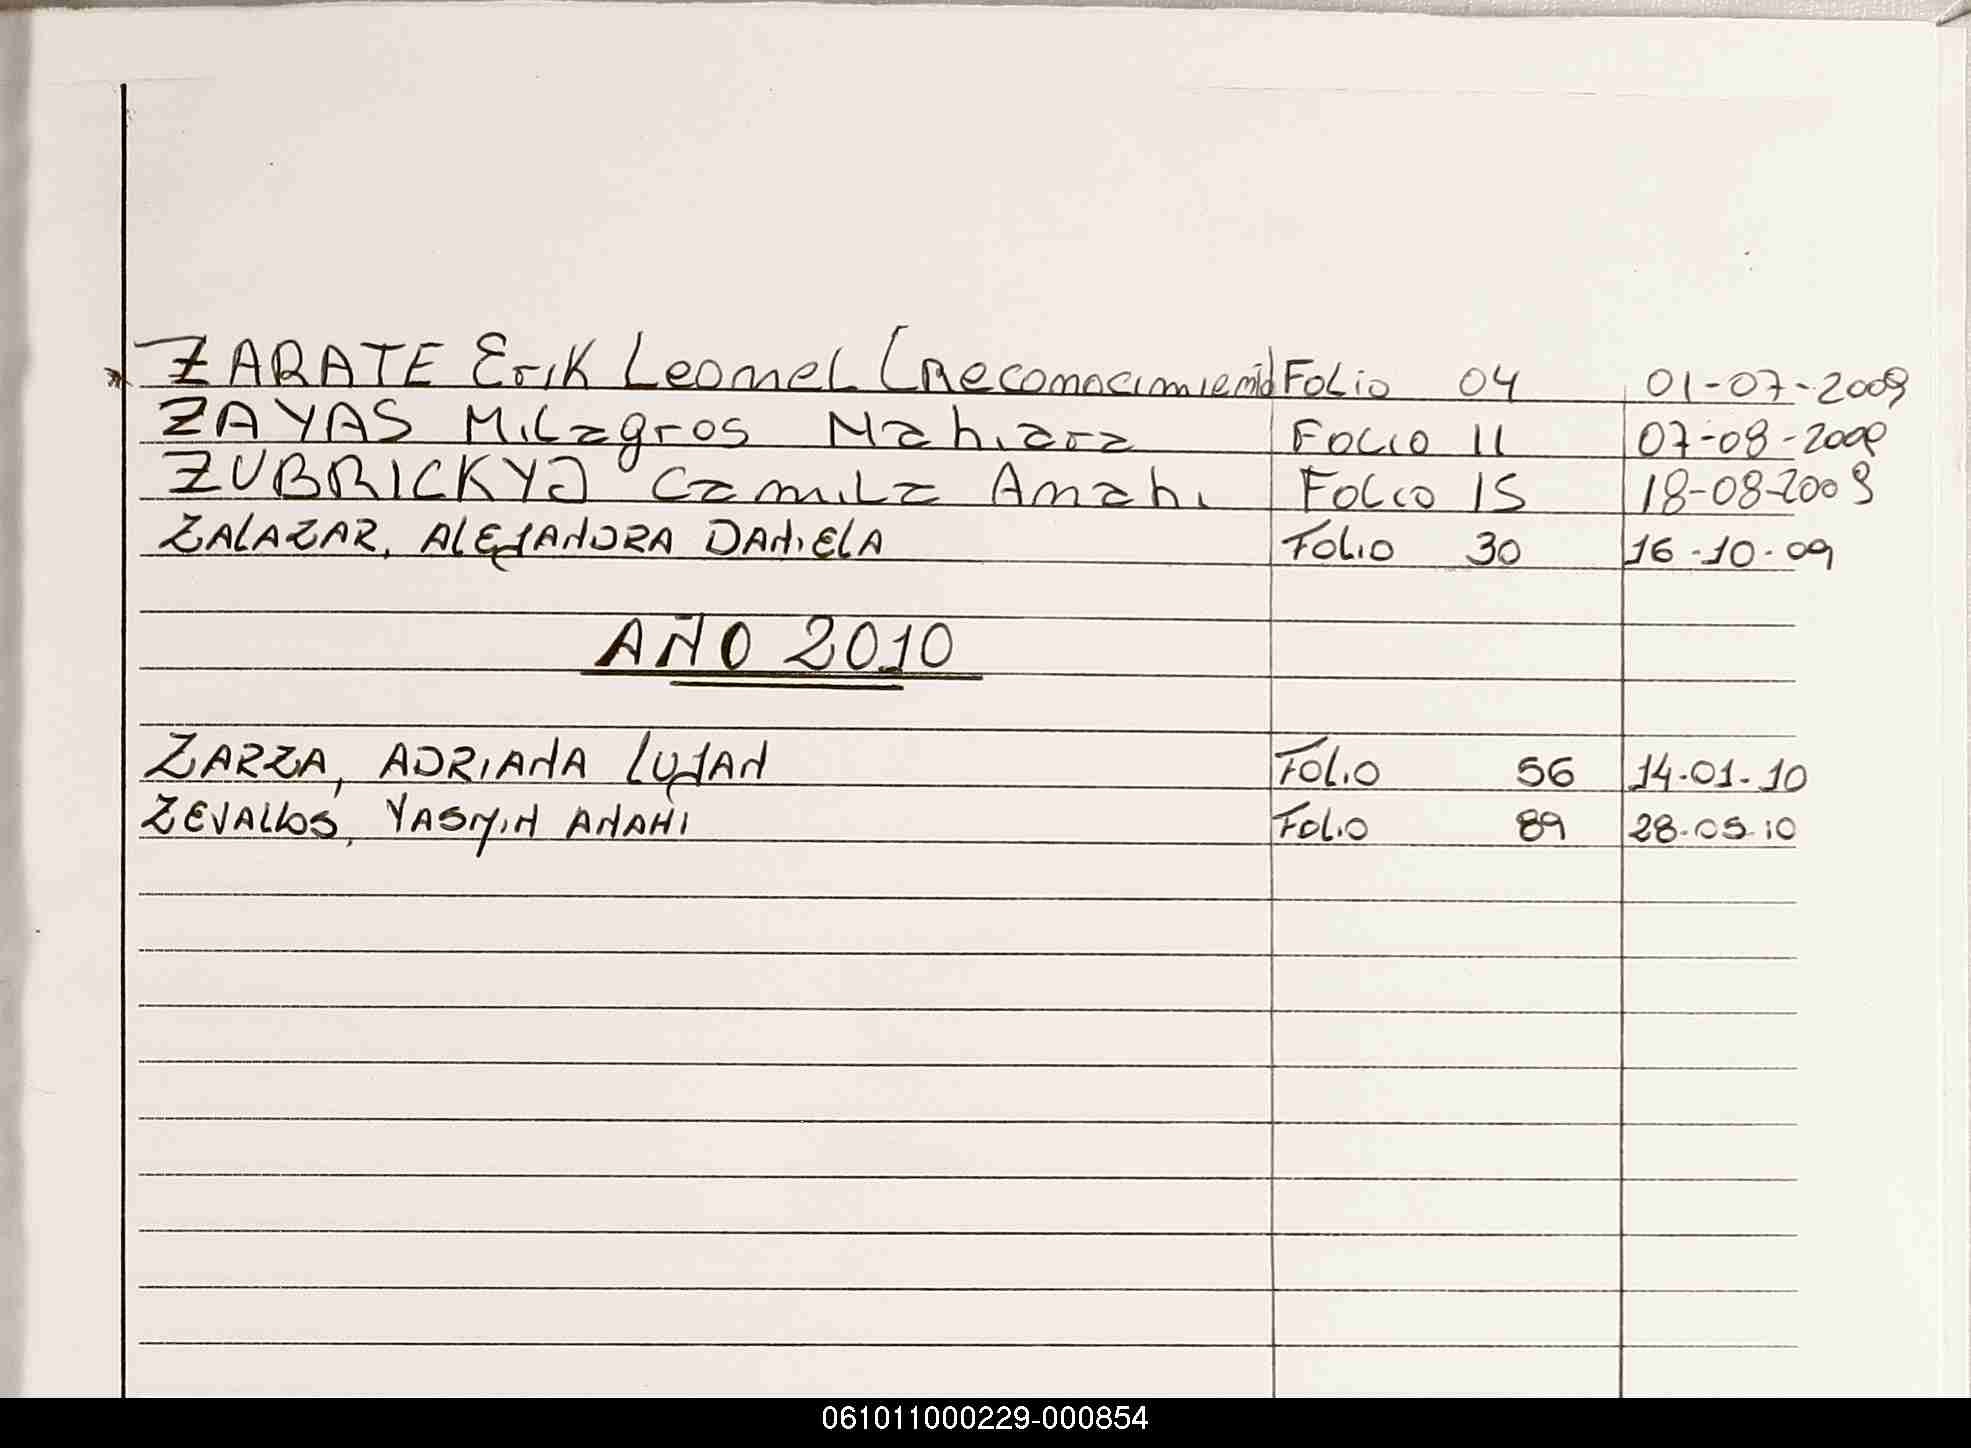 ZARATE Erik Leonel (Reconocimiento Folio 04 01-07-2009
ZAYAS Milagros Nahiara Folio 11 07-08-2009
ZUBRICKYJ Camila Anahi Folio 15 18-08-2009
ZALAZAR, ALEJANDRA DANIELA Folio 30 16-10-09
AÑO 2010
ZARZA, ADRIANA LUJAN Folio 56 14-01-10
ZEVALLOS, YASMIN ANAHI Folio 89 28-05-10
061011000229-000854